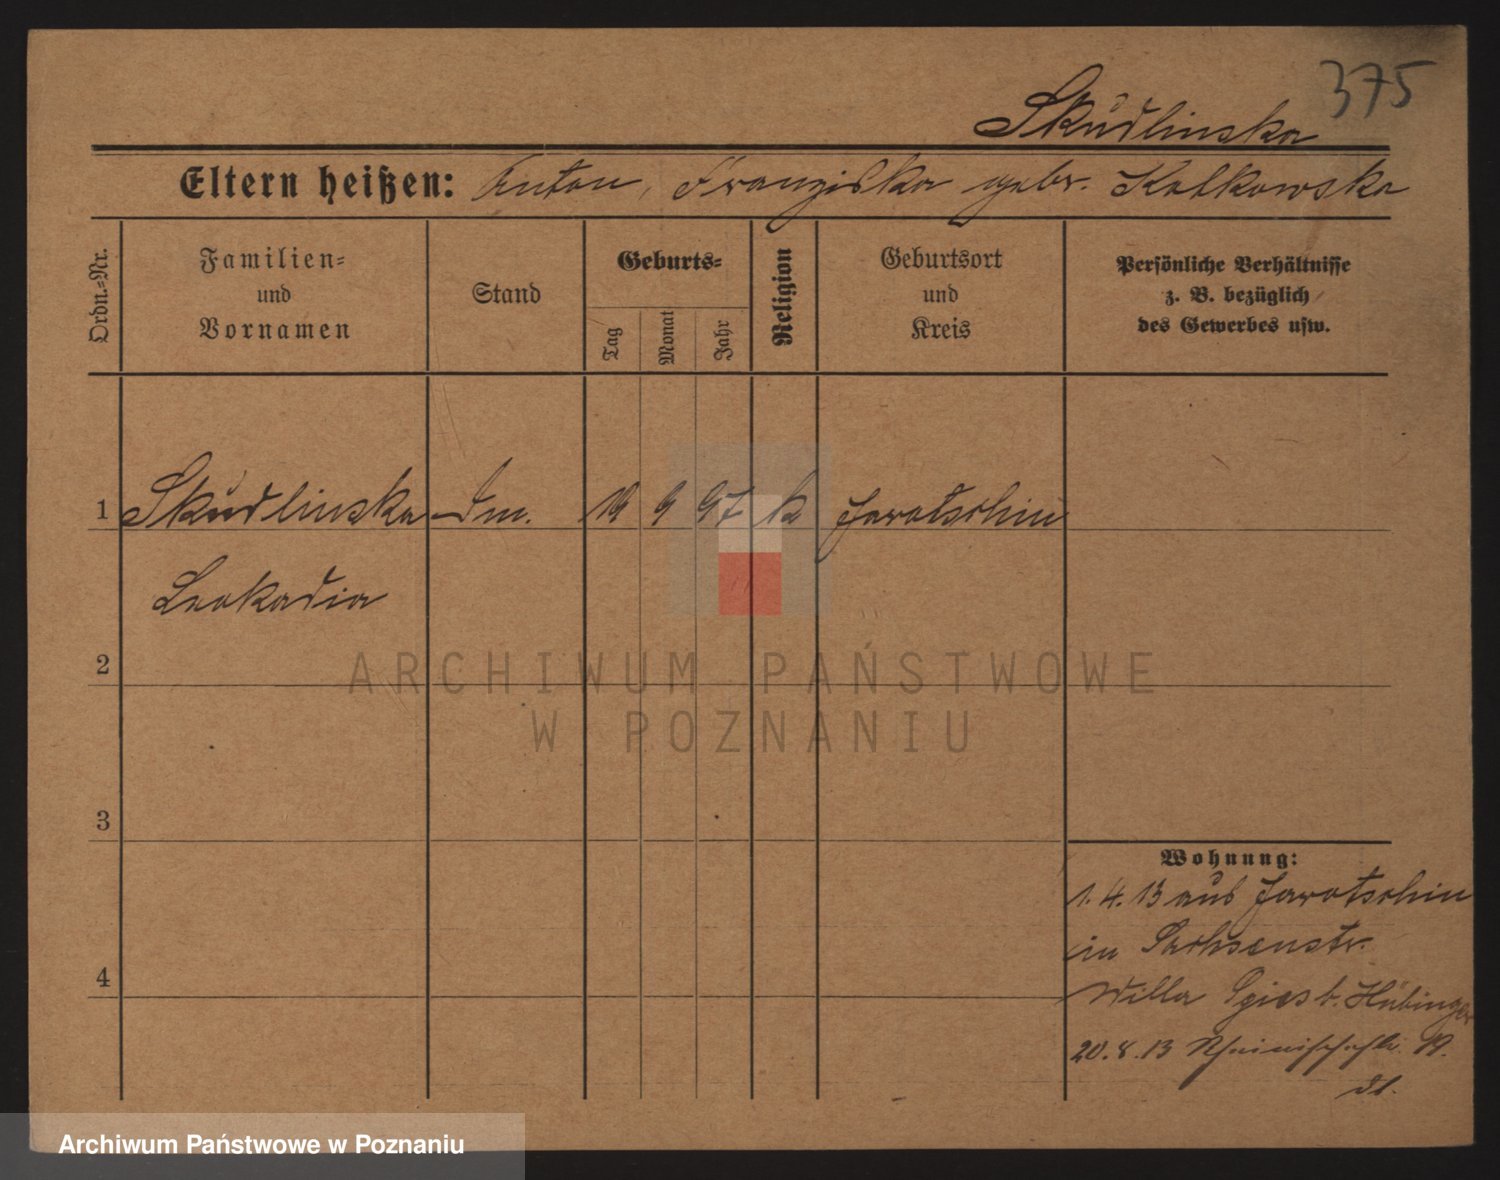 375
Skudlinska
Eltern heißen: Anton, Franziska gebr. Kalkowska
Ordn.-Nr.
Familien-
und
Vornamen
Stand
Geburts-
Tag
Monat
Jahr
Religion
Geburtsort
und
Kreis
Persönliche Verhältnisse
z. B. bezüglich
des Gewerbes usw.
1 Skudlinska 19 9 97 k Jarotschin
Leokadia
2
ARCHIWUM PAŃSTWOWE
W POZNANIU
3
Wohnung:
1.4.13 aus Jarotschin
in Sachsenstr.
4
Villa b. Hübinger
20.8.13 19.
Archiwum Państwowe w Poznaniu